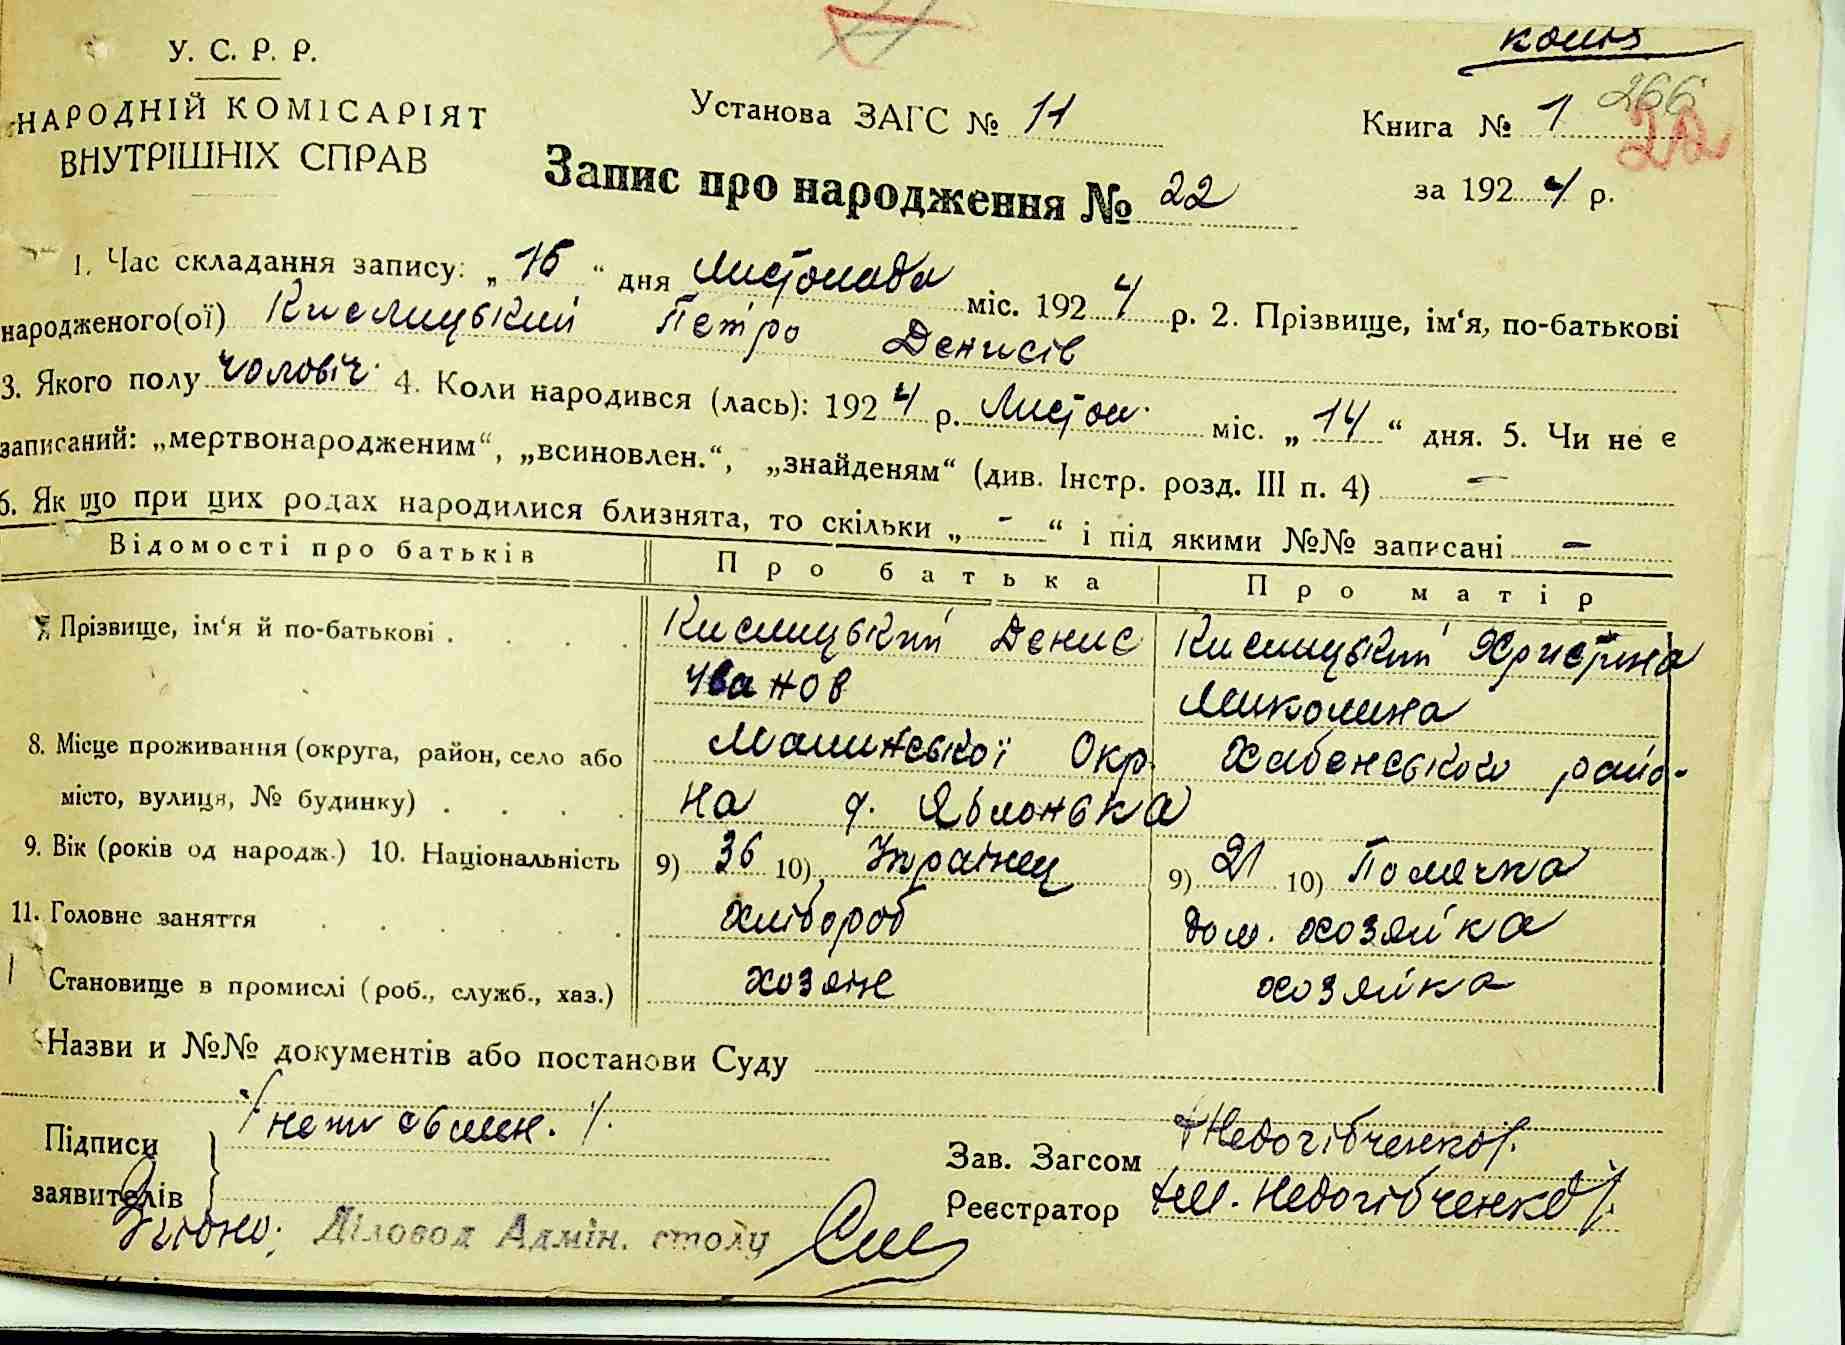 копія
У. С. Р. Р.
НАРОДНІЙ КОМІСАРІЯТ
ВНУТРІШНІХ СПРАВ
Установа ЗАГС № 11
Книга № 1
266
22
Запис про народження № 22
за 1924 р.
1. Час складання запису: „16“ дня Листопада міс. 1924 р. 2. Прізвище, ім'я, по-батькові
народженого(ої) Кислицький Петро Денисів
3. Якого полу чоловіч. 4. Коли народився (лась): 1924 р. Листоп. міс. „14“ дня. 5. Чи не є
записаний: „мертвонародженим“, „всиновлен.“, „знайденям“ (див. Інстр. розд. III п. 4) -
6. Як що при цих родах народилися близнята, то скільки „-“ і під якими №№ записані -
Відомості про батьків Про батька Про матір
7. Прізвище, ім'я й по-батькові . . . . Кислицький Денис Кислицький Христина
Іванов Миколина
8. Місце проживання (округа, район, село або Малинської Окр. Хабенського райо-
місто, вулиця, № будинку) . . . . на с. Яблонька
9. Вік (років од народж.) 10. Національність 9) 36 10) Українец 9) 21 10) Полячка
11. Головне заняття . . . . . хлібороб дом. хозяйка
Становище в промислі (роб., служб., хаз.) хозяїн хозяйка
Назви и №№ документів або постанови Суду
Підписи
заявителів
Зав. Загсом /Недогібченко/.
Реєстратор /М. Недогібченко/.
Згідно: Діловод Адмін. столу